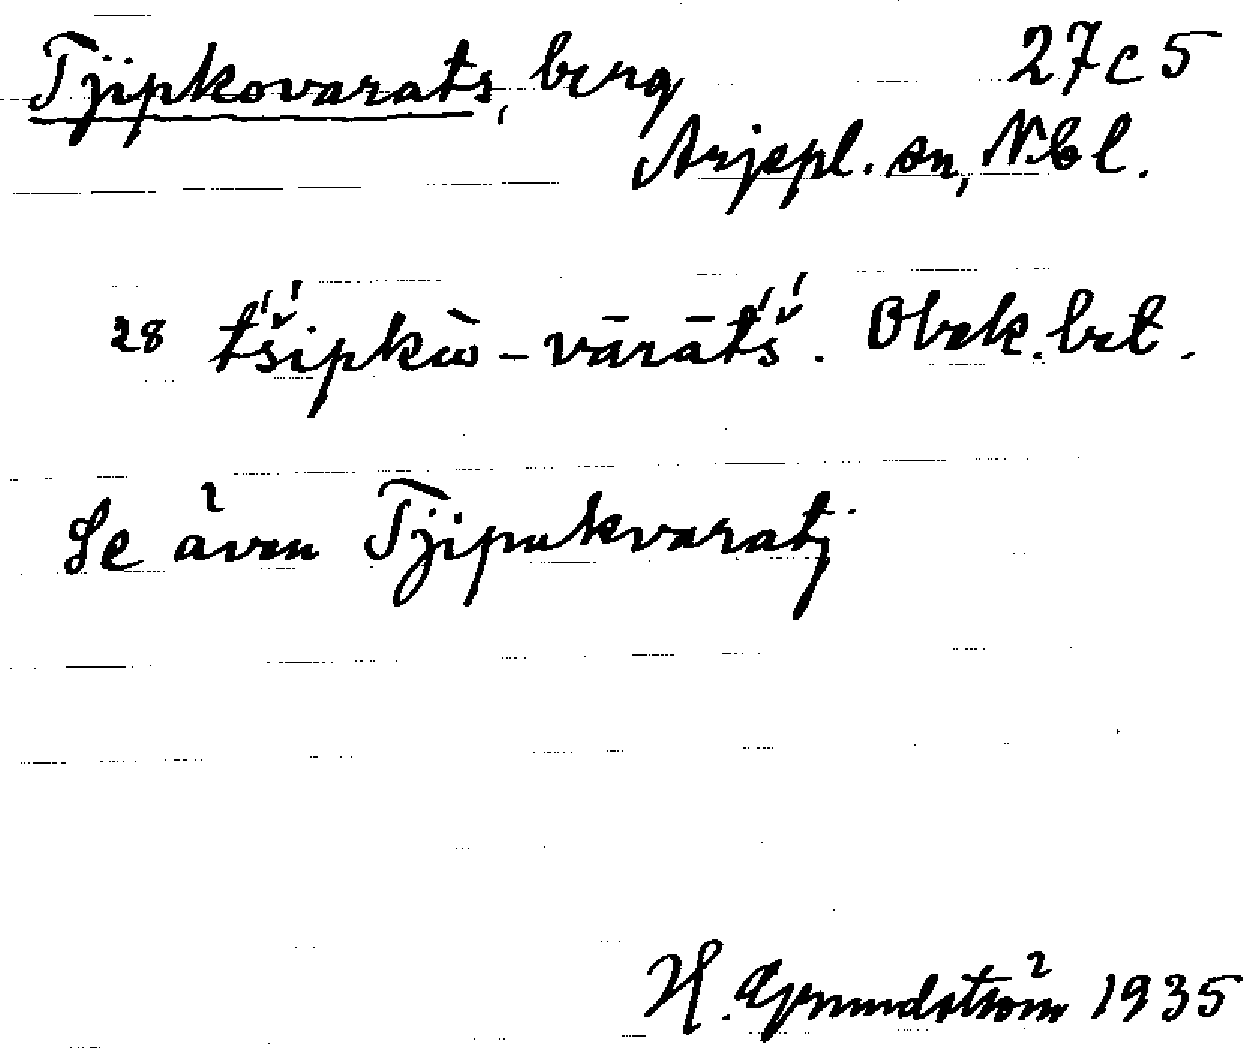 Tjipkovarats, berg 27c5
Arjepl. sn, Nbl.
28 t́š́ipkѡ̀ - vārāt́š́. Obek. bet.
Se även Tjipukvaratj
H. Grundström 1935